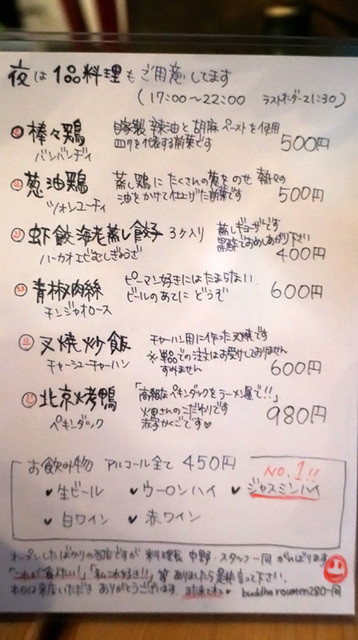 夜は1品料理もご用意してます
(17:00〜22:00 ラストオーダー21:30)
棒々鶏 自家製 辣油と胡麻ペーストを使用
四川を代表する前菜です
バンバンヂィ 500円
葱油鶏 蒸し鶏にたくさんの葱をのせ 熱々の
油をかけて仕上げた前菜です
ツォンユーヂィ 500円
虾餃 海老蒸し餃子 3ケ入り 蒸しギョーザです
黒酢でお召しあがり下さい
ハーカオ エビむしぎょうざ 400円
青椒肉絲 ピーマン好きにはたまらない
ビールのあてに どうぞ 600円
チンジャオロース
叉焼炒飯 チャーハン用に作った叉焼です
※単品での注文はお受けしておりません
すみません
チャーシューチャーハン 600円
北京烤鴨 「高級なペキンダックをラーメン屋で!!」
火田さんのこだわりです
赤字かくごです♡
ペキンダック 980円
お飲み物 アルコール全て 450円
NO.1!!
生ビール ウーロンハイ ジャスミンハイ
白ワイン 赤ワイン
オープンしたばかりの当店ですが 料理長 中野・スタッフ一同 がんばります
「これが食べたい!」「私これ好き!!」等 ありましたら是非言って下さい。
本日は来店いただき ありがとうございます。